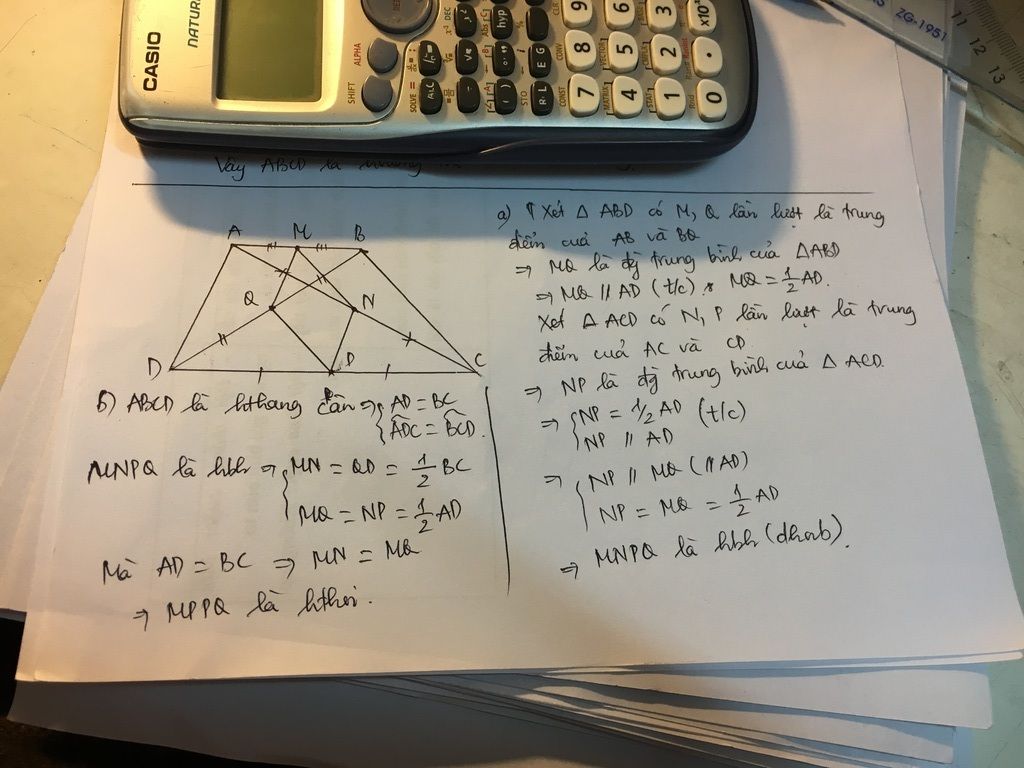 CASIO
NATURA
SHIFT
ALPHA
SOLVE =
hyp
STO
CONST
CONV
9 6 3 x10
8 5 2 •
7 4 1 0
ZG-1951
11
12
13
Vậy ABCD là
A M B
Q N
D P C
a) Xét Δ ABD có M, Q lần lượt là trung
điểm cuả AB và BQ
⇒ MQ là đg trung bình của ΔABD
⇒ MQ // AD (t/c), MQ = 1/2 AD.
Xét Δ ACD có N, P lần lượt là trung
điểm cuả AC và CD.
⇒ NP là đg trung bình cuả Δ ACD.
⇒ { NP = 1/2 AD (t/c)
NP // AD
⇒ { NP // MQ (// AD)
NP = MQ = 1/2 AD
⇒ MNPQ là hbh (dhnb).
b) ABCD là hthang cân ⇒ { AD = BC
ADC = BCD.
MNPQ là hbh ⇒ { MN = QD = 1/2 BC
MQ = NP = 1/2 AD
Mà AD = BC ⇒ MN = MQ
⇒ MPPQ là hthoi.